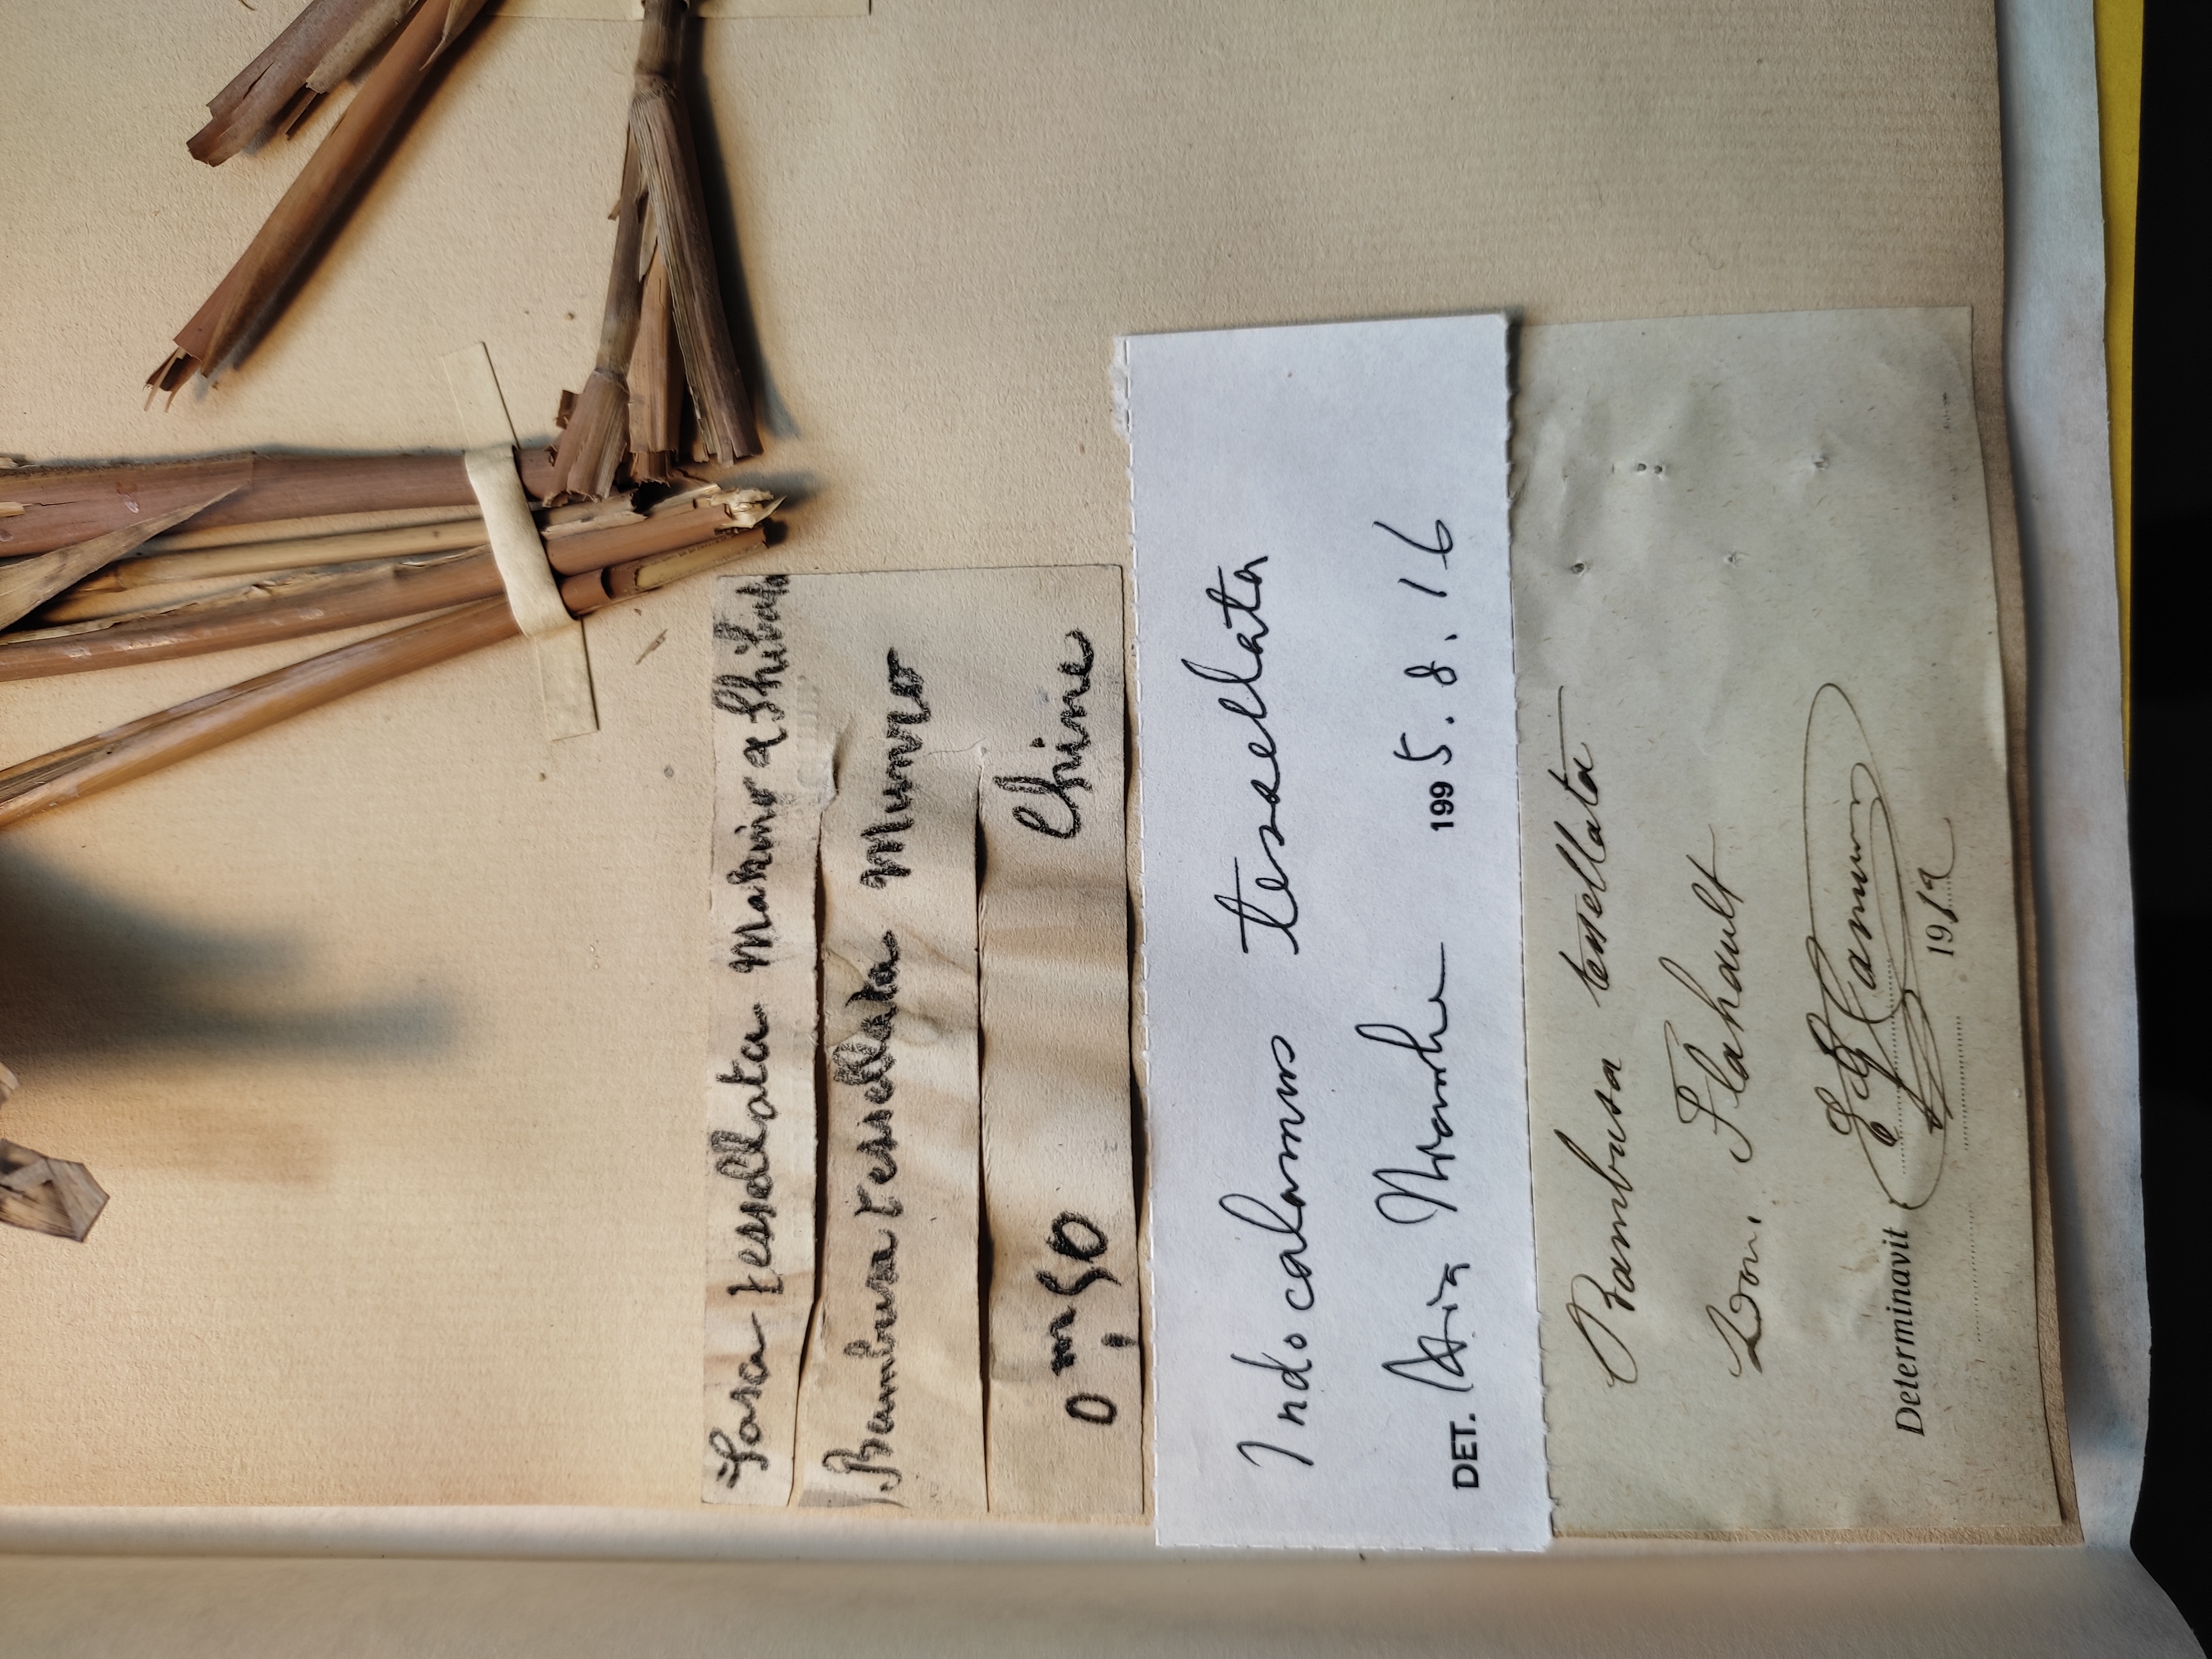 Sasa tessellata Makino & Shibata
Bambusa tessellata Munro
0m,50 Chine
Indocalamus tessellata
DET. 1995.8.16
Bambusa tessellata
Don. Flahault
EG Camus
Determinavit
1912